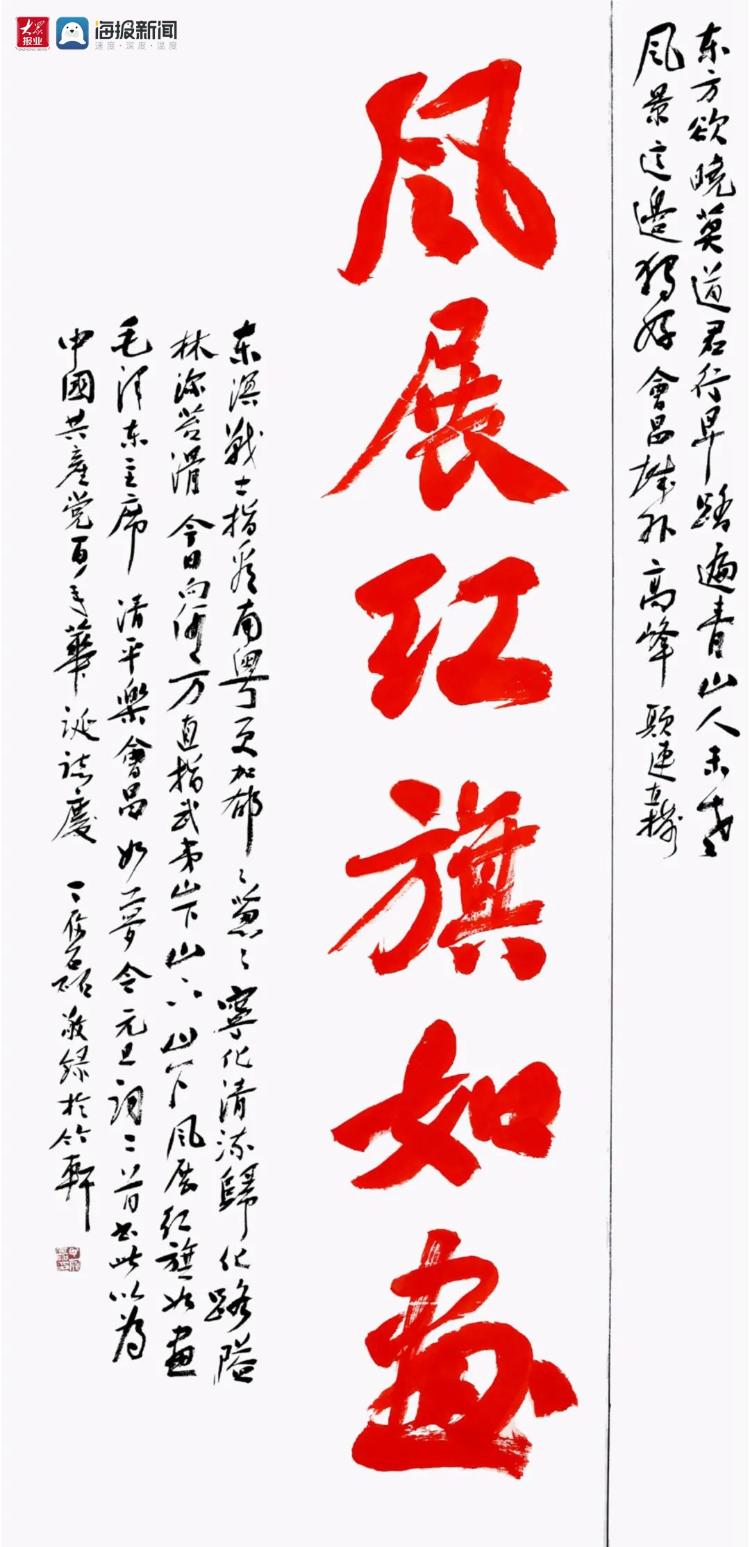 大众报业
海报新闻
速度·深度·温度
东方欲晓莫道君行早踏遍青山人未老
风景这邊独好會昌城外高峰颠连直接
风展红旗如畫
东溟战士指看南粤更加郁々葱々寧化清流歸化路隘
林深苔滑今日向何方直指武夷山下山下山下风展红旗如畫
毛泽东主席 清平樂會昌 如夢令元旦词二首书此以为
中國共產党百年華诞誌慶 敬録於竹軒